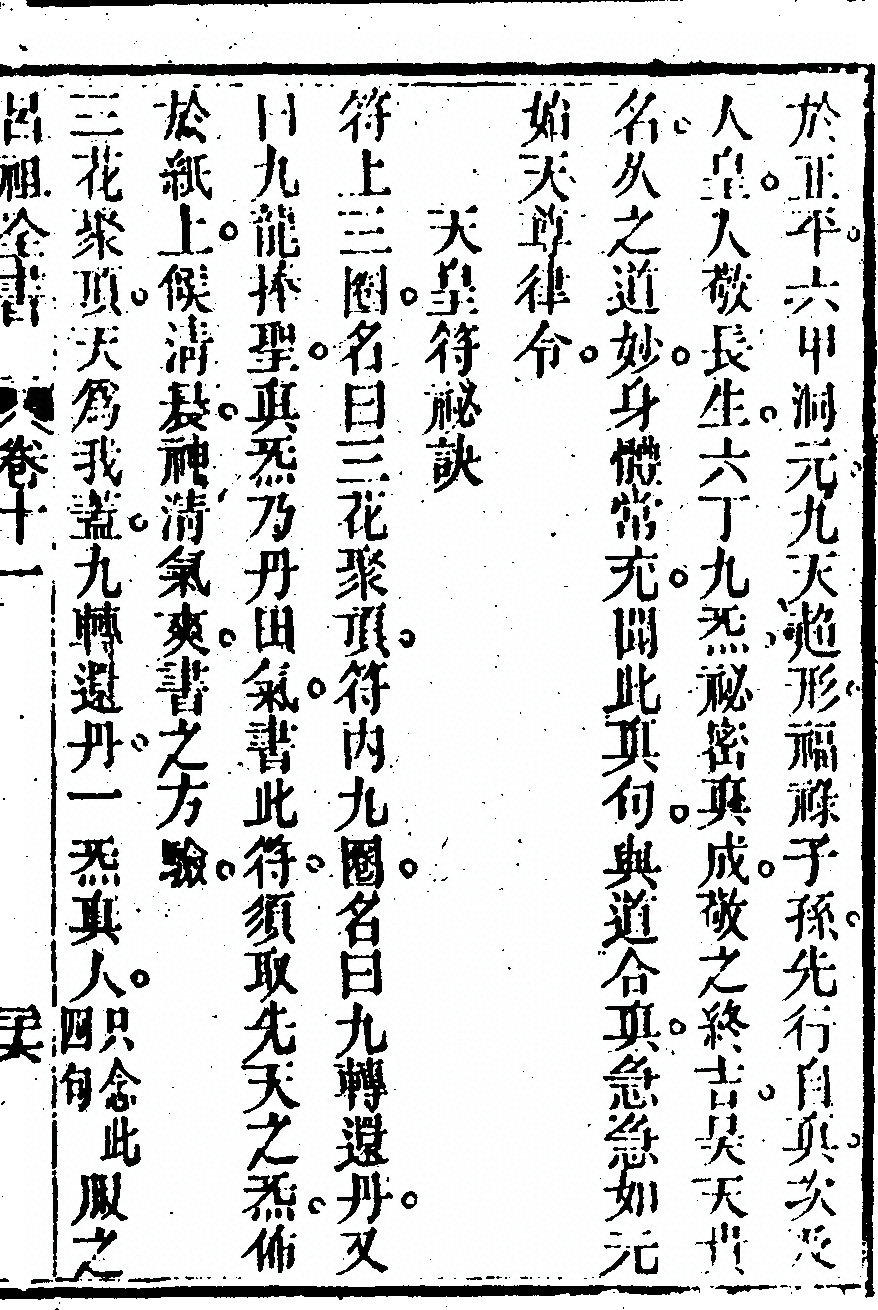 於正平六甲洞元九天超形福祿子孫先行自真次及
人皇人敬長生六丁九炁祕密真成敬之終吉昊天貴
名久之道妙身體常充聞此真句與道合真急急如元
始天尊律令
天皇符祕訣
符上三圈名曰三花聚頂符內九圈名曰九轉還丹又
曰九龍捧聖真炁乃丹田氣書此符須取先天之炁佈
於紙上候清晨神清氣爽書之方驗
三花聚頂天爲我蓋九轉還丹一炁真人只念此四句服之
呂祖全書 卷十一 三六